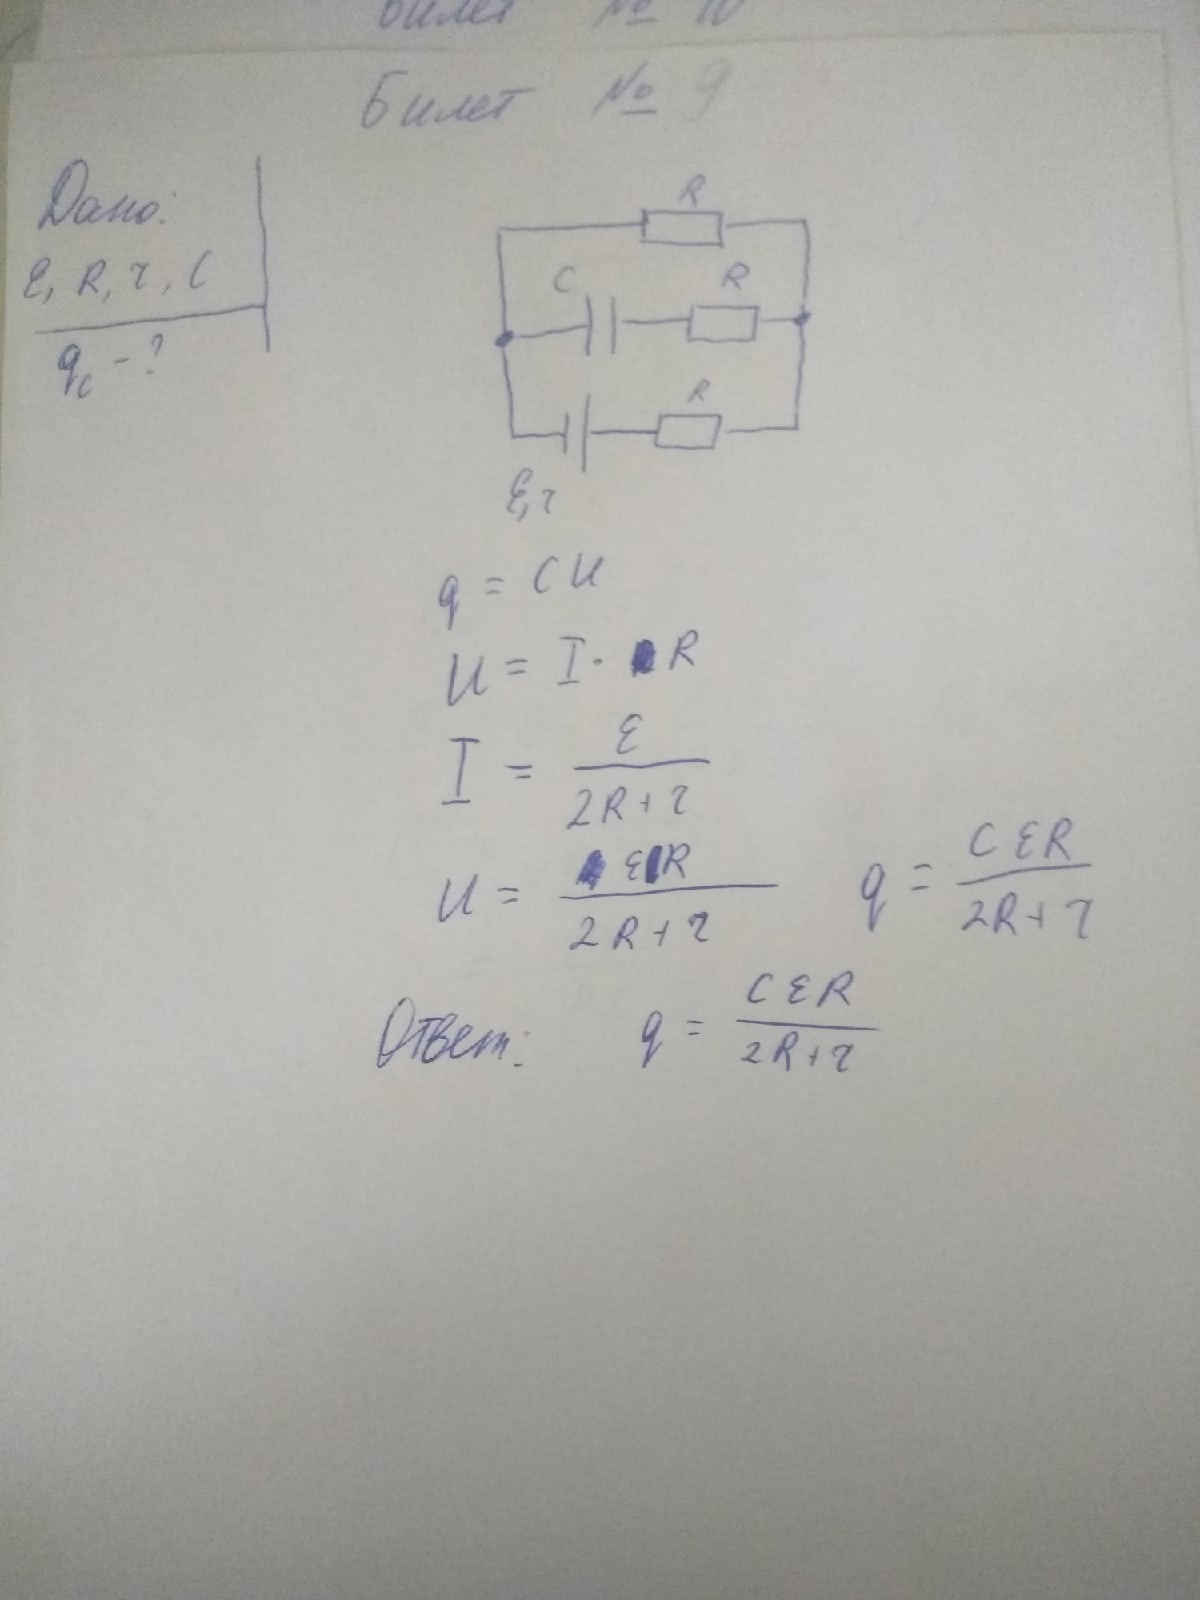 Билет № 10
Билет № 9
Дано:
ε, R, r, C
q_c - ?
R
C R
R
ε, r
q = CU
U = I · R
I = ε / (2R + r)
U = εR / (2R + r)
q = CεR / (2R + r)
Ответ: q = CεR / (2R + r)